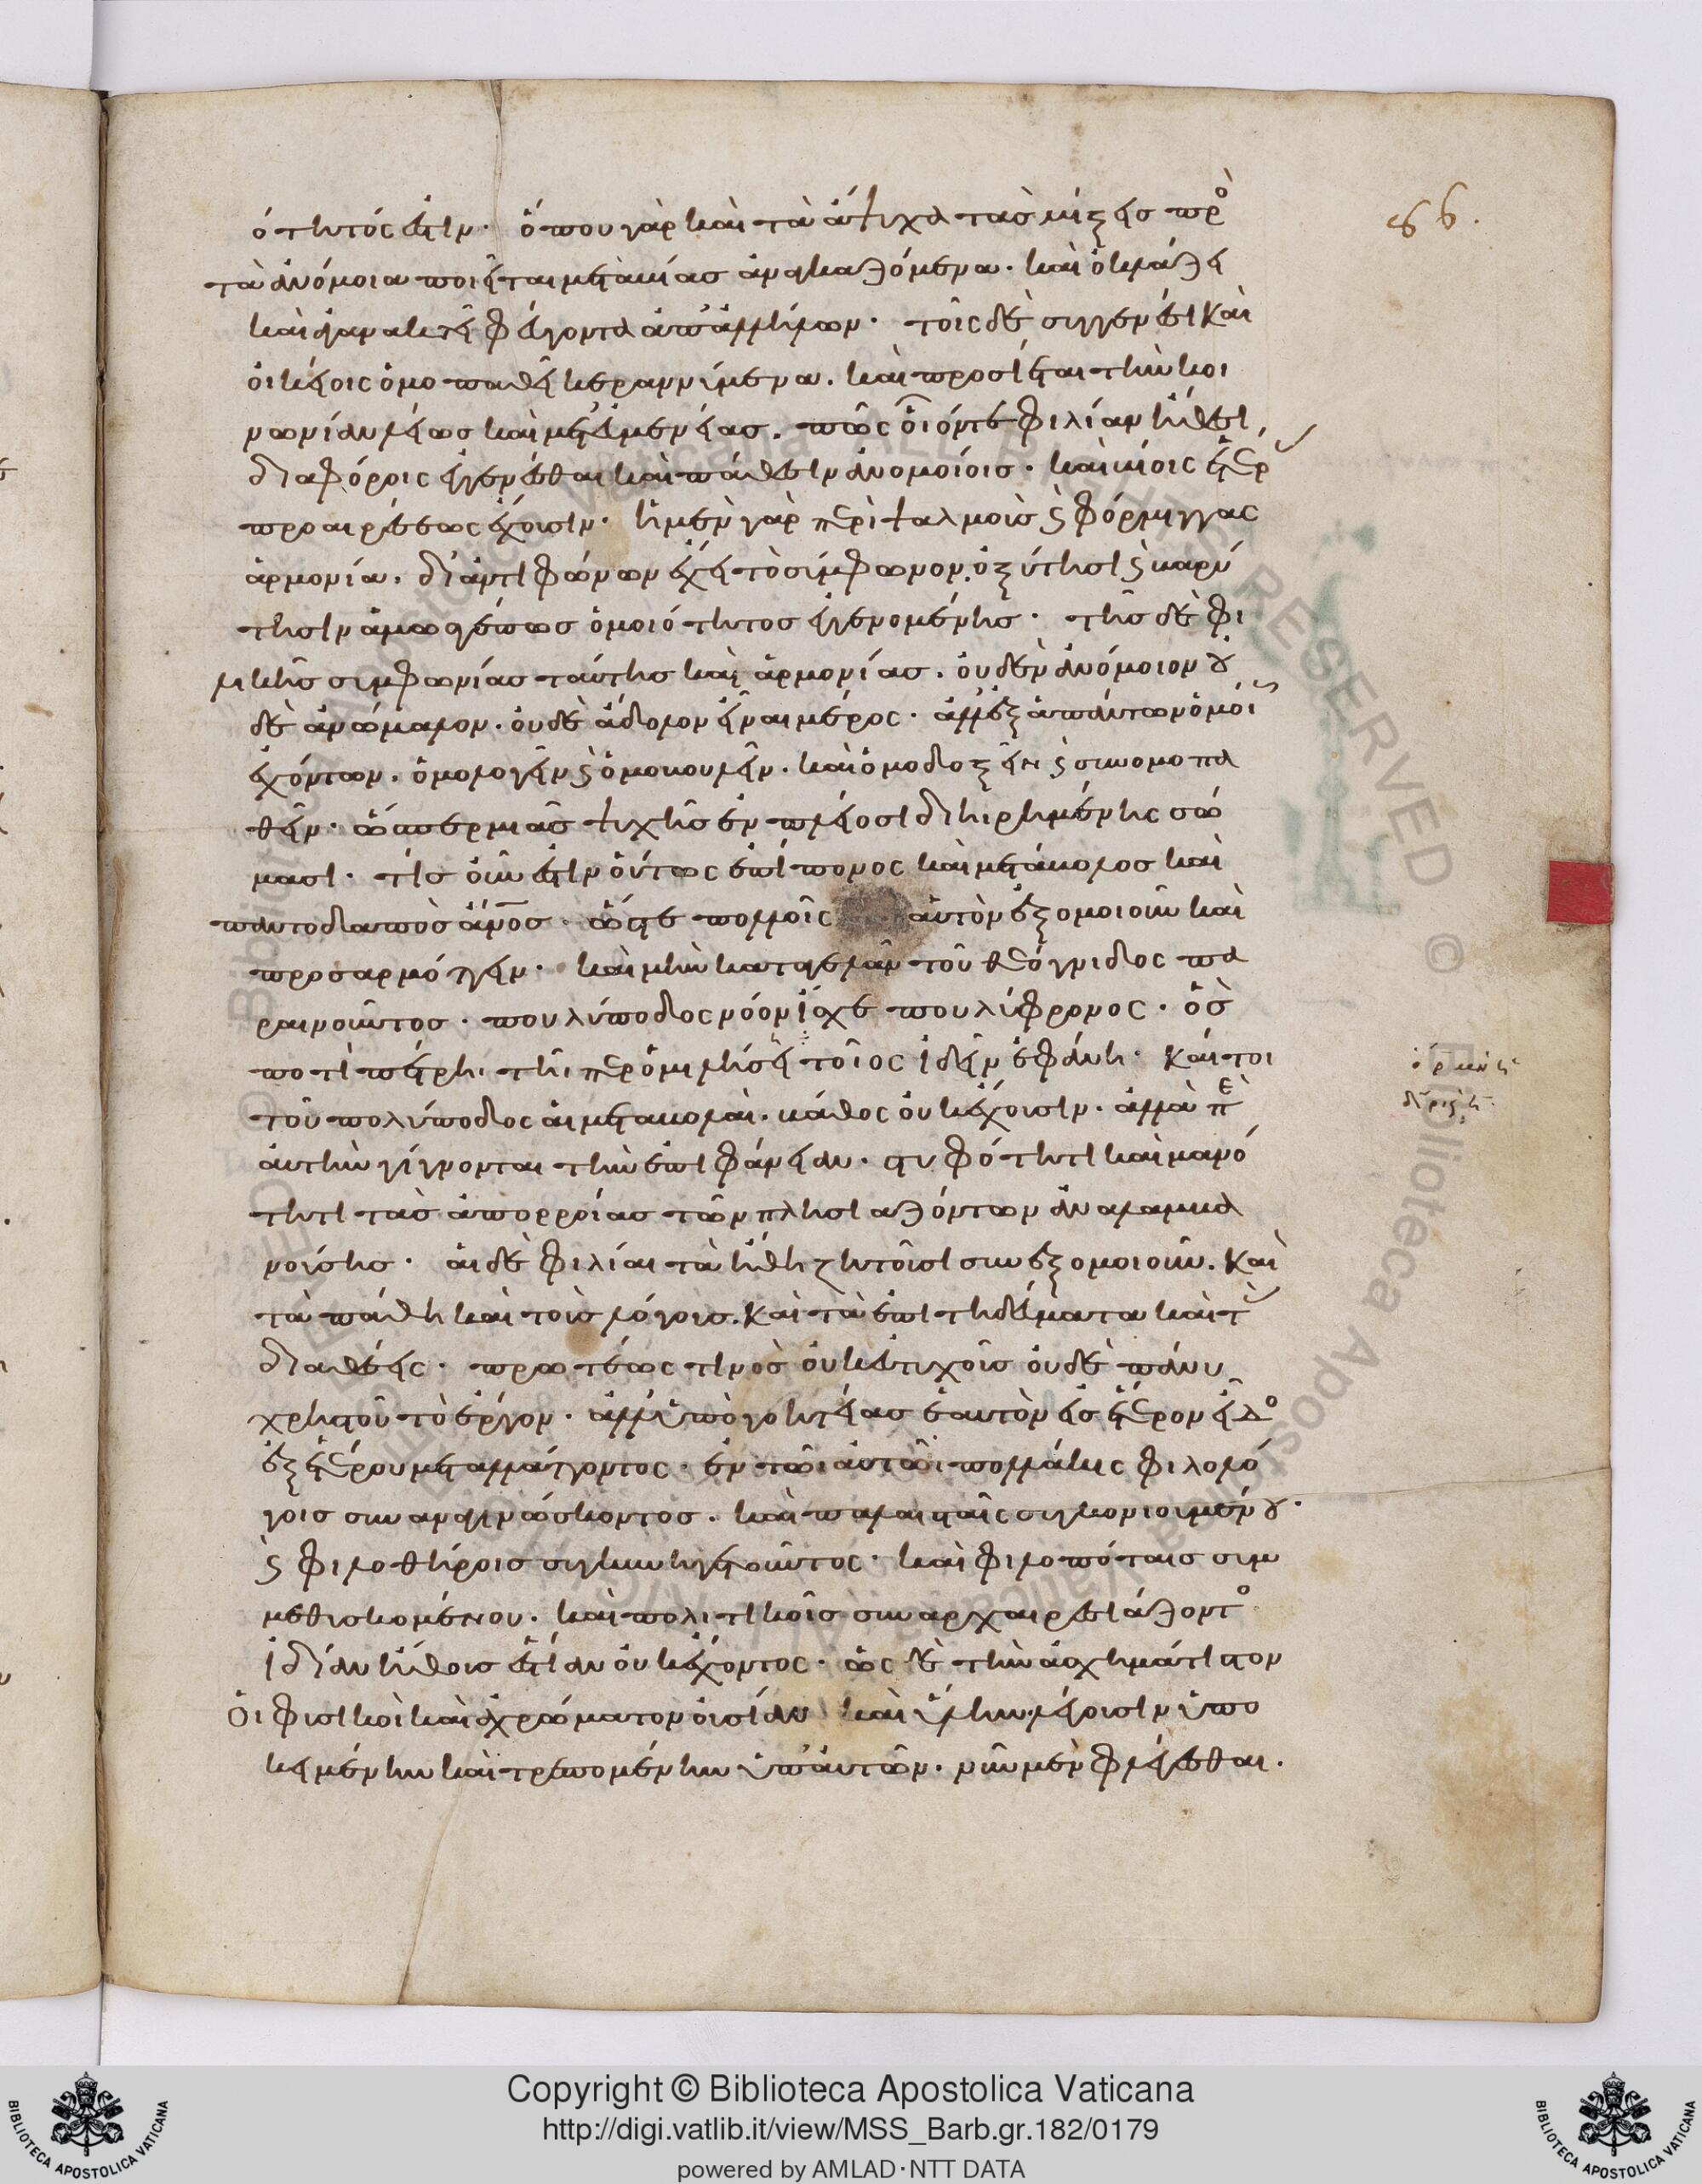 86.
ότητός ἐστιν· ὅπου γὰρ καὶ τὰ ἄψυχα τὰς μίξεις πρὸ
τὰ ἀνόμοια ποιεῖται μετὰ βίας ἀναγκαζόμενα. καὶ ὀκλάζει
καὶ ἀγανακτεῖ φεύγοντα ἀπ' ἀλλήλων· τοῖς δὲ συγγενέσι καὶ
οἰκείοις ὁμοπαθεῖ κεραννύμενα. καὶ προσίεται τὴν κοι
νωνίαν λείως καὶ μετ' εὐμενείας. πῶς οἷόν τε φιλίαν ἤθεσι
διαφόροις ἐγγενέσθαι καὶ πάθεσιν ἀνομοίοις. καὶ βίοις ἑτέρ
προαιρέσεως ἔχουσιν· ἡ μὲν γὰρ περὶ ψαλμοὺς ϗ φόρμιγγας
ἁρμονία. δι' ἀντιφώνων ἔχει τὸ σύμφωνον. ὀξύτησι ϗ βαρύ
τησιν ἁμωσγέπως ὁμοιότητος ἐγγενομένης· τῆς δὲ φι
λικῆς συμφωνίας ταύτης καὶ ἁρμονίας. οὐδὲν ἀνόμοιον ȣ
δὲ ἀνώμαλον. οὐδὲ ἄδολον εἶναι μέρος. ἀλλ' ἐξ ἁπάντων ὁμοί
ἐχόντων. ὁμολογεῖν ϗ ὁμοβουλεῖν. καὶ ὁμοδοξεῖν ϗ συνομοπα
θεῖν. ὥσπερ μιᾶς ψυχῆς ἐν πλείοσι διῃρημένης σώ
μασι. τίς οὖν ἐστιν οὕτως ἐπίπονος καὶ μετάβολος καὶ
παντοδαπὸς ἄνος. ὥστε πολλοῖς αὐτὸν ἐξομοιοῦν καὶ
προσαρμόττειν. καὶ μὴ καταγελᾶν τοῦ θεόγνιδος πα
ραινοῦντος. πουλύποδος νόον ἴσχε πουλύφρονος. ὃς
ποτὶ πέτρῃ. τῇ περ ὁμιλήσει τοῖος ἰδεῖν ἐφάνη. καίτοι
τοῦ πολύποδος αἱ μεταβολαὶ. βάθος οὐκ ἔχουσιν. ἀλλὰ πε
αὐτὴν γίγνονται τὴν ἐπιφάνειαν. στυφότητι καὶ μανό
τητι τὰς ἀπορροίας τῶν πλησιαζόντων ἀναλαμβα
νούσης. αἱ δὲ φιλίαι τὰ ἤθη ζητοῦσι συνεξομοιοῦν. καὶ
τὰ πάθη καὶ τοὺς λόγους. καὶ τὰ ἐπιτηδεύματα καὶ τ
διαθέσεις. πρωτέως τινὸς οὐκ εὐτυχοῦς οὐδὲ πάνυ
χρηστοῦ τὸ ἔργον. ἀλλ' ὑπὸ γοητείας ἑαυτὸν εἰς ἕτερον εἶδο
ἐξ ἑτέρου μεταλλάττοντος. ἐν τῶι αὐτῶι πολλάκις φιλολό
γοις συναναγινώσκοντος. καὶ παλαισταῖς συγκονιουμένȣ.
ϗ φιλοθήροις συγκυνηγετοῦντος. καὶ φιλοπόταις συμ
μεθυσκομένου. καὶ πολιτικοῖς συναρχαιρεσιάζοντο
ἰδίαν ἤθους ἑστίαν οὐκ ἔχοντος. ὡς δὲ τὴν ἀσχημάτιστον
Οἱ φυσικοὶ καὶ ἀχρώματον οὐσίαν καὶ ὕλην λέγουσιν ὑπο
κειμένην καὶ τρεπομένην ὑπ' αὐτῶν. νῦν μὲν φλέγεσθαι.
Copyright © Biblioteca Apostolica Vaticana
http://digi.vatlib.it/view/MSS_Barb.gr.182/0179
powered by AMLAD·NTT DATA